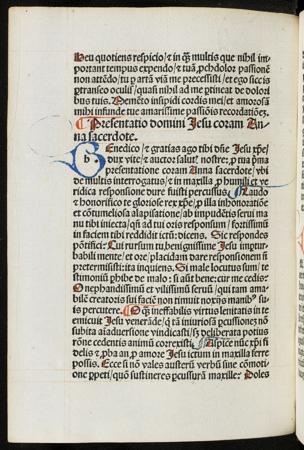 Heu quotiens respicio/ ⁊ in q̄ multis que nihil im
portant tempus expendo/ ⁊ tuā p̄chdolor passionē
non attēdo/ tu ꝛ artā viā me precessisti/ et ego siccis
ptranseo oculis/ quasi nihil ad me ptineat de dolori
bus tuis. Memēto insipidi cordis mei/ et amorosā
mihi infunde tue amarissime passiōis recordatiōeꝫ.
Presentatio domini Jesu coram An
na sacerdote.
Benedico/ ⁊ gratias ago tibi dn̄e Jesu xp̄e/
dux vite/ ⁊ auctor salut⁹ nostre: p tua pͥma
presentatione coram Anna sacerdote/ vbi
de multis interrogatus/ ⁊ in maxilla p humili ⁊ ve
ridica responsione dure fuisti percussus. Laudo
⁊ honorifico te gloriose rex xp̄e/ p illa inhonoratiōe
et cōtumeliosa alapisatione/ ab impudētis serui ma
nu tibi iniecta/ qn̄ ad tui oris responsum/ fortissimū
in faciem tibi reddidit ictū: dicens. Sic respondes
pōtifici? Cui rursum tu benignissime Jesu impertur
babili mente/ et ore/ placidam dare responsionem nō
pretermisisti: ita inquiens. Si male locutus sum/ te
stimoniū phibe de malo: si aūt bene: cur me cedis?
O nephandissimū et vilissimū seruū/ qui tam ama
bilē creatoris sui faciē non timuit noxijs manib⁹ su
is percutere. O q̄ ineffabilis virtus lenitatis in te
emicuit Jesu venerāde/ q tā iniuriosā pcussionē/ nō
subita aīaduersione vindicasti/ sꝫ deliberata potius
rōne cedentis animū correxisti. Aspice nūc xp̄i fi
delis ⁊ p̄ba an p amore Jesu ictum in maxilla ferre
possis. Ecce si nō vales austerū verbū sine cōmoti
one ppeti/ quō sustineres pcussurā maxille? Doles